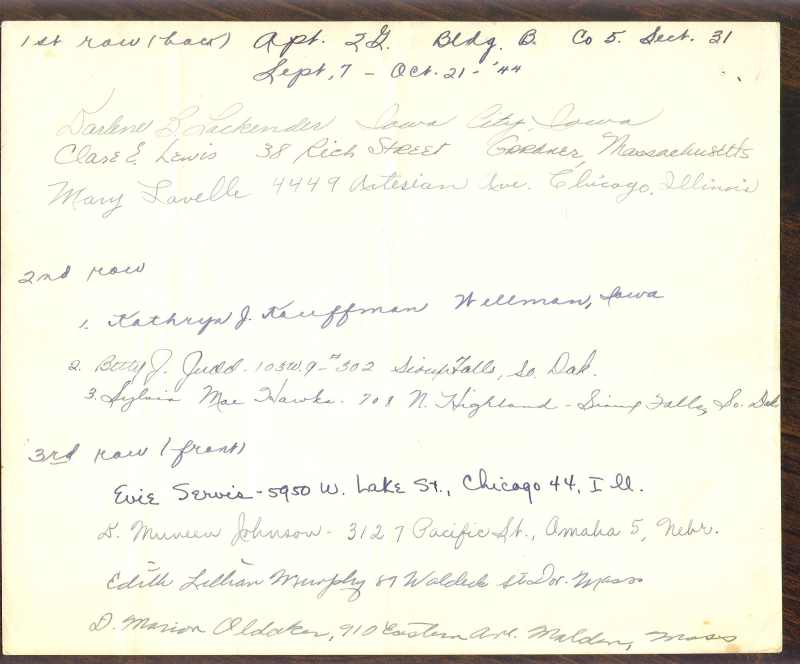 1st row (back) Apt. 2G. Bldg. B. Co 5. Sect. 31
Sept. 7 - Oct. 21 - '44
Darlene B. Lackender Iowa City, Iowa
Clare E. Lewis 38 Rich Street Gardner, Massachusetts
Mary Lavelle 4449 Artesian Ave. Chicago, Illinois
2nd row
1. Kathryn J. Kauffman Wellman, Iowa
2. Betty J. Judd. 103 W. 9 - #302 Sioux Falls, So. Dak.
3. Sylvia Mae Hawks. 708 N. Highland - Sioux Falls, So. Dak
3rd row (front)
Evie Servis - 5950 W. Lake St., Chicago 44, Ill.
D. Muneen Johnson - 3127 Pacific St., Omaha 5, Nebr.
Edith Lillian Murphy 87 Waldeck St Dor. Mass
D. Marion Oldaker, 910 Eastern Ave. Malden, Mass